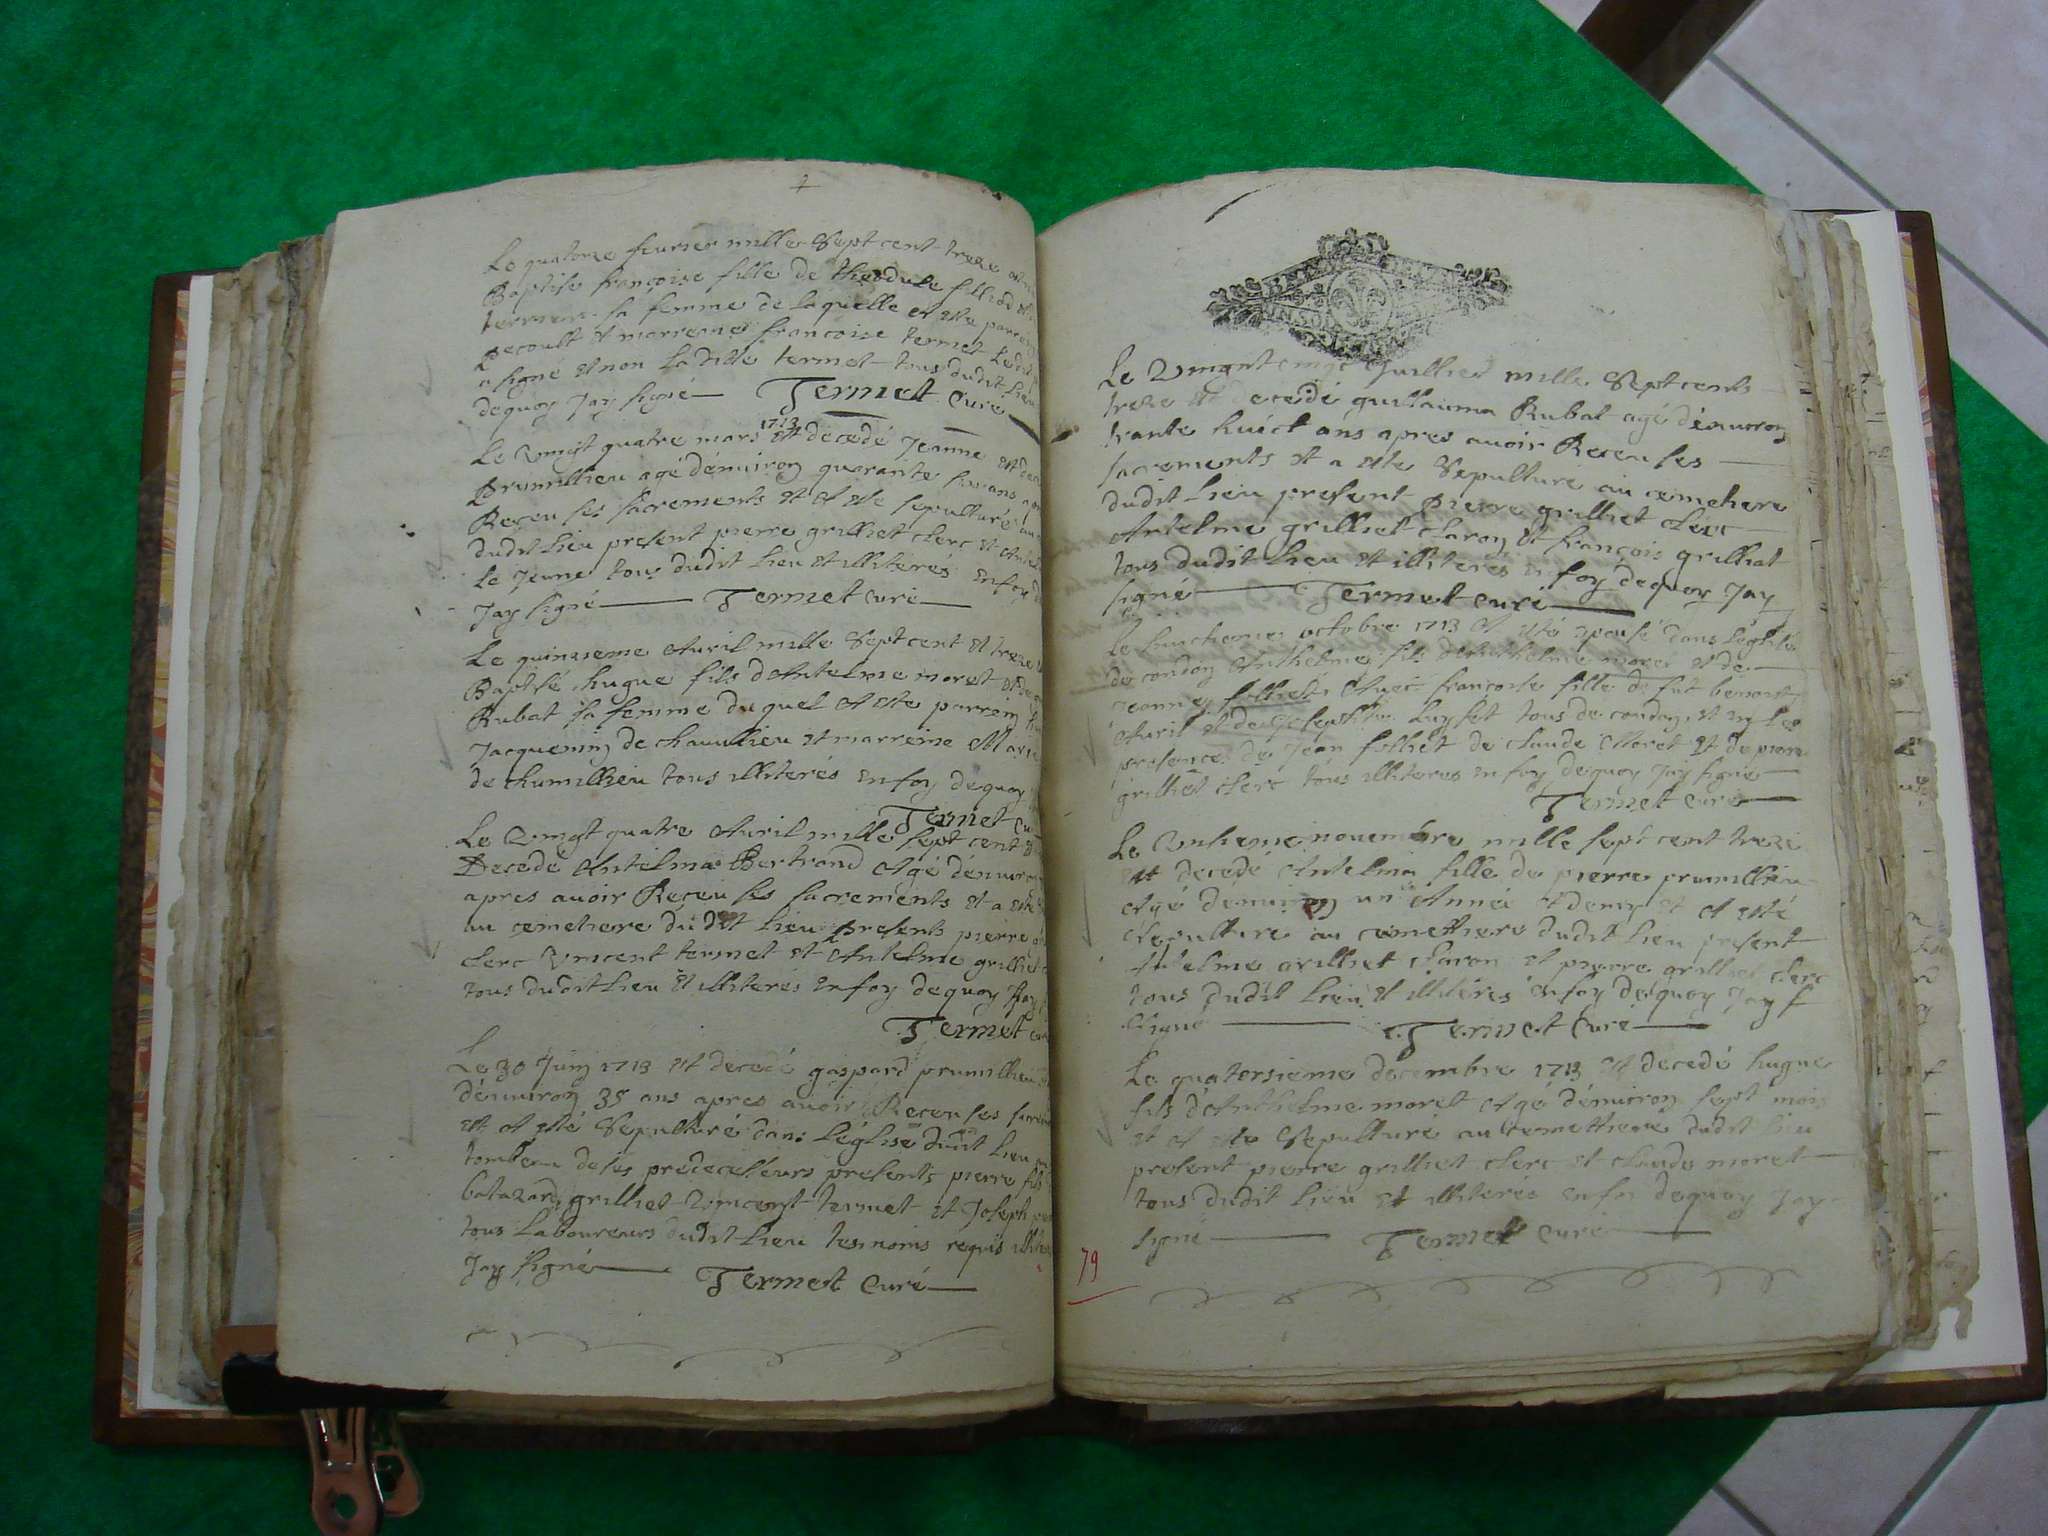 Le quatorze feurier mille sept cent treze
Baptise françoise fille de theodule filliod et
sa femme de laquelle et este
et marreine françoise termet Ledit
a signé et non Laditte termet tous dudit Lieu
dequoy Jay signé Termet Curé
Le vingt quatre mars 1713 est decedé Jeanne
prumillieu agé dénuiron quarante ans
Reçeu ses sacrements et at este sepulturé
dudit Lieu present pierre grilliet clerc et
Le Jeune tous dudit Lieu et illiterés en foy
Jay signé Termet Curé
Le quinzeme Auril mille Sept cent et treze
Baptisé hugue fils d'Antelme moret et
Rubat sa femme duquel at este parrein
Jacquemin de chauillieu et marreine Marie
de thumillieu tous illiterés en foy dequoy
Termet
Le vingt quatre Auril mille sept cent
Decedé Antelma Bertrand Agé dénuiron
apres auoir Reçeu ses sacrements et a este
au cemetiere dudit Lieu presents pierre
clerc vincent termet et Antelme grilliet
tous dudit Lieu et illiterés en foy dequoy Jay
Termet
Le 30 Juin 1713 est decedé gaspard prumillieu
dénuiron 35 ans apres auoir Receu ses
et at esté Sepulturé dans Léglise dudit Lieu
tombeau de ses predecesseurs presents pierre fils
batazard grilliet vincent termet et Joseph
tous Laboureurs dudit Lieu tesmoins requis
Jay signé Termet Curé
Le vingt cinqe Juillet mille Sept cents
treze est decedé guillauma Rubat agé dénuiron
trante huict ans apres auoir Receu ses
sacrements et a este Sepulturé au cemetiere
dudit Lieu present pierre grilliet clerc
Antelme grilliet charon et françois grilliat
tous dudit Lieu et illiteres en foy dequoy Jay
signé Termet curé
Le octobre 1713 at esté epousé dans Léglise
de condon Anthelme fils d'Anthelme moret et de
Jeanne folliet Auec françoise fille de fut benoit
Auril et de Luyset tous de condon et en Les
presences de Jean folliet de claude Moret et de pierre
grilliet clerc tous illiteres en foy dequoy Jay signé
Termet Curé
Le nouembre mille sept cent treze
est decedé Antelma fille de pierre prumillieu
Agé dénuiron un Année et demy et at esté
Sepulture au cemettiere dudit Lieu present
Antelme grilliet charon et pierre grilliet clerc
tous dudit Lieu et illiterés en foy dequoy Jay
signé Termet Curé
Le quatorsieme decembre 1713 est decedé hugue
fils d'Anthelme moret Agé dénuiron sept mois
et at este Sepulturé au cemettiere dudit Lieu
present pierre grilliet clerc et claude moret
tous dudit Lieu et illiterés en foy dequoy Jay
signé Termet Curé
79